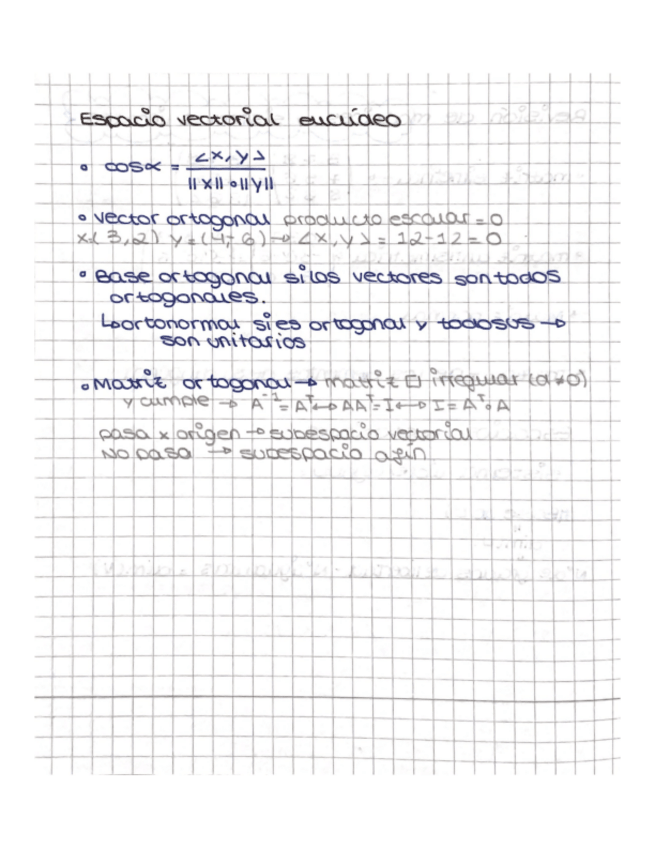 Espacio vectorial euclídeo
• cosα = <x,y> / ||x||•||y||
• vector ortogonal producto escalar = 0
x=(3,2) y=(4,-6) → <x,y> = 12-12=0
• Base ortogonal si los vectores son todos
ortogonales.
↳ ortonormal si es ortogonal y todos sus →
son unitarios
• Matriz ortogonal → matriz □ irregular (d≠0)
y cumple → A⁻¹=Aᵀ ↔ AAᵀ=I ↔ I=Aᵀ•A
pasa x origen → subespacio vectorial
No pasa → subespacio afín